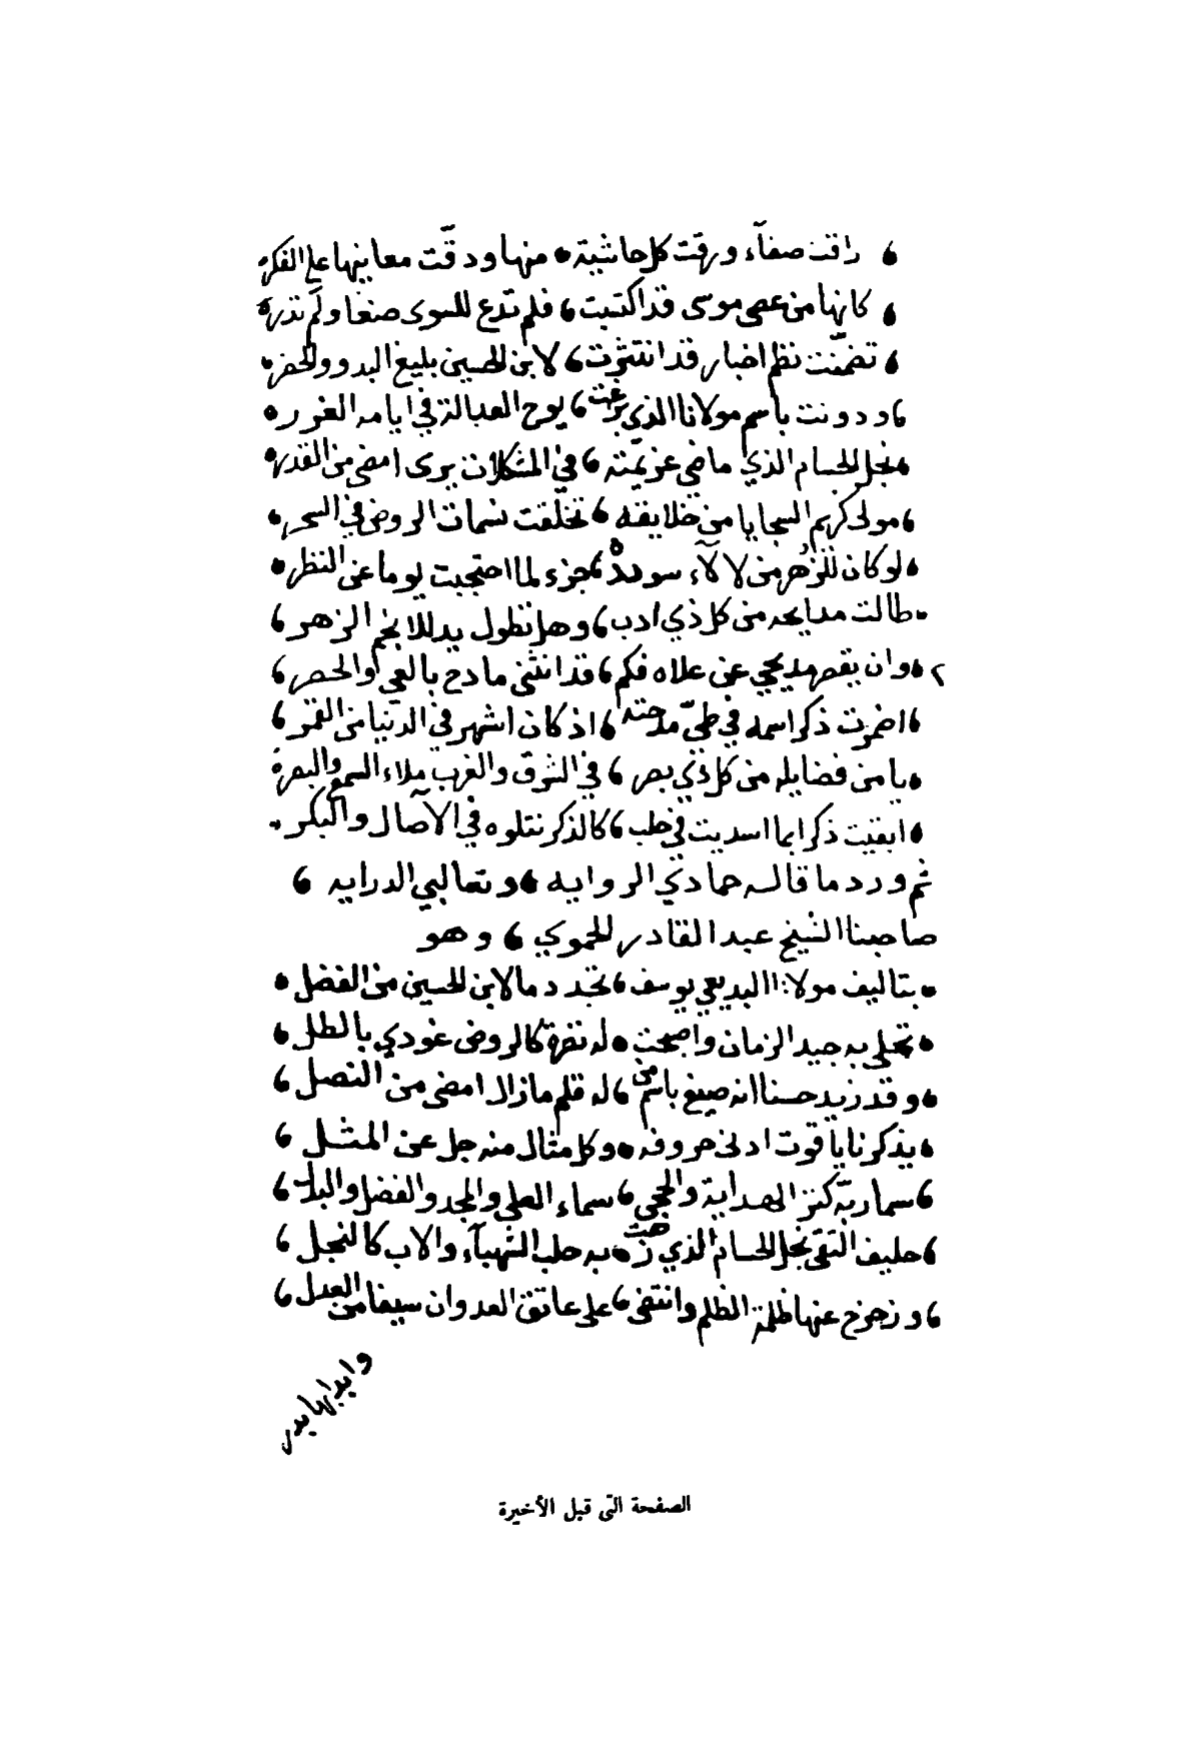 راقت صفآء ورقت كل حاشية • منها ودقّت معاينها على الفكر
كانها من عصى موسى قد اكتسبت ، فلم تدع للسوى صنعا ولم تذر
تضمّنت نظم اخبار قد انتثرت ، لابن الحسين بليغ البدو والحضر
ودونت باسم مولانا الذي بزغت ، يوح العدالة في ايامه الغرر •
نجل الحسام الذي ماضي عزيمته ، في المشكلات يرى امضى من القدر
مولى كريم السجايا من خلايقه ، تخلّقت نسمات الروض في السحر
لو كان للزهر من لالآء سودده جزء لما احتجبت يوما عن النظر •
طالت مدايحه من كل ذي ادب ، وهل تطول يد للانجم الزهر ،
٢ وان يقصر مديحي عن علاه فكم ، قد انثنى مادح بالعي والحصر ،
اضمرت ذكر اسمه في طيّ مدحته ، اذ كان اشهر في الدنيا من القمر ،
يا من فضايله من كل ذي بصر ، في الشرق والغرب ملاء السمع والبصر
ابقيت ذكرا بما اسديت في حلب ، كالذكر نتلوه في الآصال والبكر
ثم ورد ما قاله حمادي الروايه ، وثعالبي الدرايه ،
صاحبنا الشيخ عبد القادر الحموي ، وهو
بتاليف مولانا البديعي يوسف ، تجدد ما لابن الحسين من الفضل •
تحلى به جيد الزمان واصبحت • له نضرة كالروض غودي بالطل •
وقد زيد حسنا انه صيغ باسم من ، له قلم ما زال امضى من النصل ،
يذكرنا ياقوت ادنى حروفه • وكل مثال منه جل عن المثل ،
سما ربّه كنز الهداية والحجى ، سماء العلى والمجد والفضل والبذل ،
حليف التقى نجل الحسام الذي زهت • به حلب الشهبآء والاب كالنجل ،
وزحزح عنها ظلمة الظلم وانتضى ، على عاتق العدوان سيفا من العدل ،
وايدها يدر
الصفحة التى قبل الأخيرة